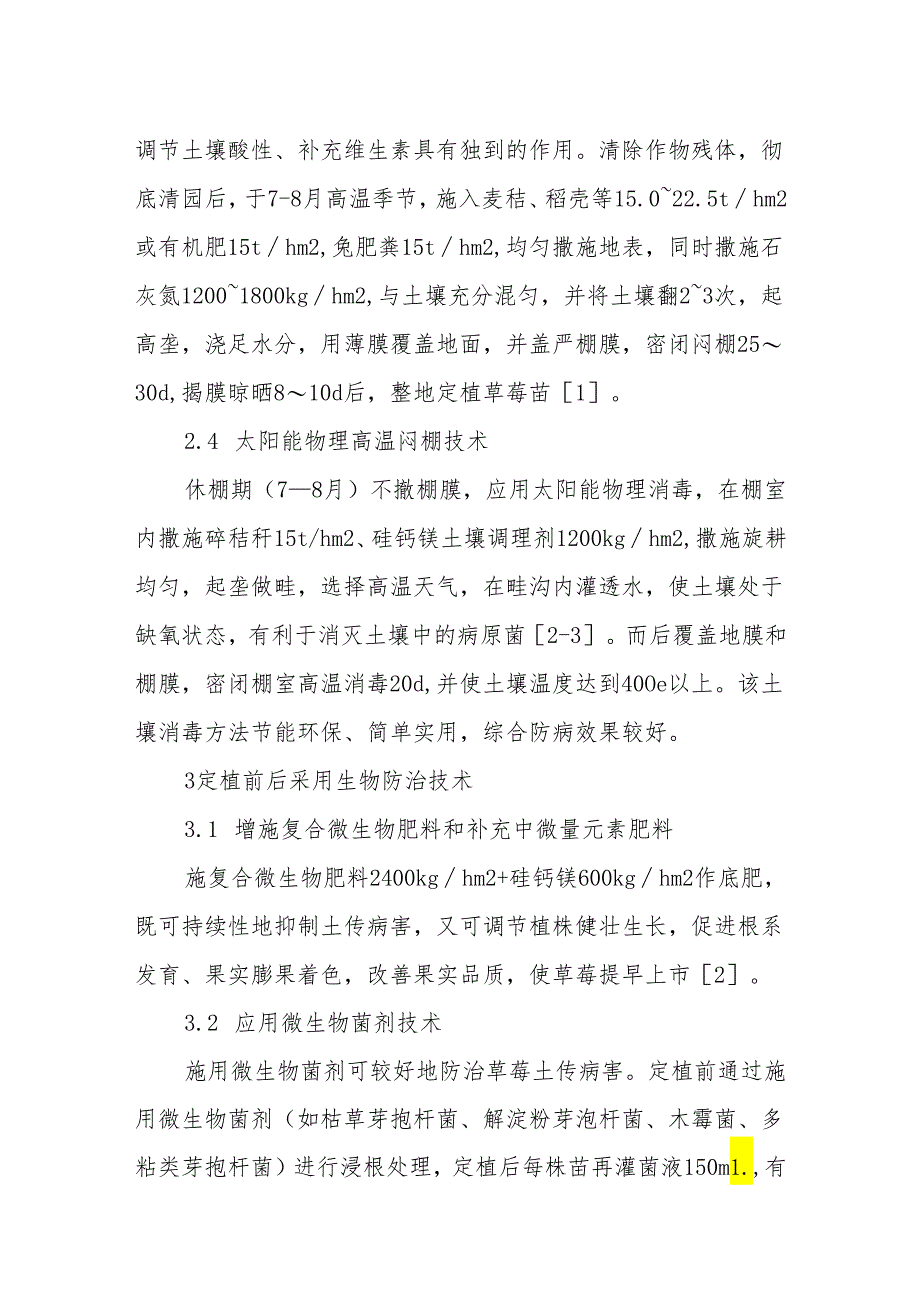 调节土壤酸性、补充维生素具有独到的作用。清除作物残体，彻
底清园后，于7-8月高温季节，施入麦秸、稻壳等15.0~22.5t／hm2
或有机肥15t／hm2,兔肥粪15t／hm2,均匀撒施地表，同时撒施石
灰氮1200~1800kg／hm2,与土壤充分混匀，并将土壤翻2~3次，起
高垄，浇足水分，用薄膜覆盖地面，并盖严棚膜，密闭闷棚25～
30d,揭膜晾晒8～10d后，整地定植草莓苗［1］。
2.4 太阳能物理高温闷棚技术
休棚期（7—8月）不撤棚膜，应用太阳能物理消毒，在棚室
内撒施碎秸秆15t/hm2、硅钙镁土壤调理剂1200kg／hm2,撒施旋耕
均匀，起垄做畦，选择高温天气，在畦沟内灌透水，使土壤处于
缺氧状态，有利于消灭土壤中的病原菌［2-3］。而后覆盖地膜和
棚膜，密闭棚室高温消毒20d,并使土壤温度达到40Oe以上。该土
壤消毒方法节能环保、简单实用，综合防病效果较好。
3定植前后采用生物防治技术
3.1 增施复合微生物肥料和补充中微量元素肥料
施复合微生物肥料2400kg／hm2+硅钙镁600kg／hm2作底肥，
既可持续性地抑制土传病害，又可调节植株健壮生长，促进根系
发育、果实膨果着色，改善果实品质，使草莓提早上市［2］。
3.2 应用微生物菌剂技术
施用微生物菌剂可较好地防治草莓土传病害。定植前通过施
用微生物菌剂（如枯草芽抱杆菌、解淀粉芽泡杆菌、木霉菌、多
粘类芽抱杆菌）进行浸根处理，定植后每株苗再灌菌液150m1.,有